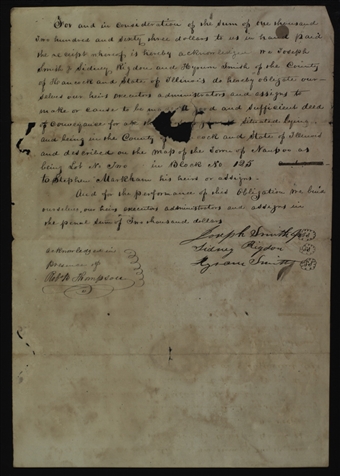 For and in consideration of the Sum of one thousand
two hundred and Sixty three dollars to us in hand paid
the receipt whereof, is hereby acknowledged we Joseph
Smith & Sidney Rigdon and Hyrum Smith of the County
of Hancock and State of Illinois do hereby obligate our-
selves our heirs executors administrators and assigns to
make or cause to be made good and sufficient deed
of conveyance for situated lying
and being in the County of ock and State of Illinois
and described on the map of the Town of Nauvoo as
being Lot No Two in Block No 125
to Stephen Markham his heirs or assigns.
And for the performance of this Obligation we bind
ourselves, our heirs executors, administrators and assigns in
the penal Sum of two thousand dollars
Joseph Smith
Sidney Rigdon
Hyrum Smith
acknowledged in
presence of
Robt B. Thompson